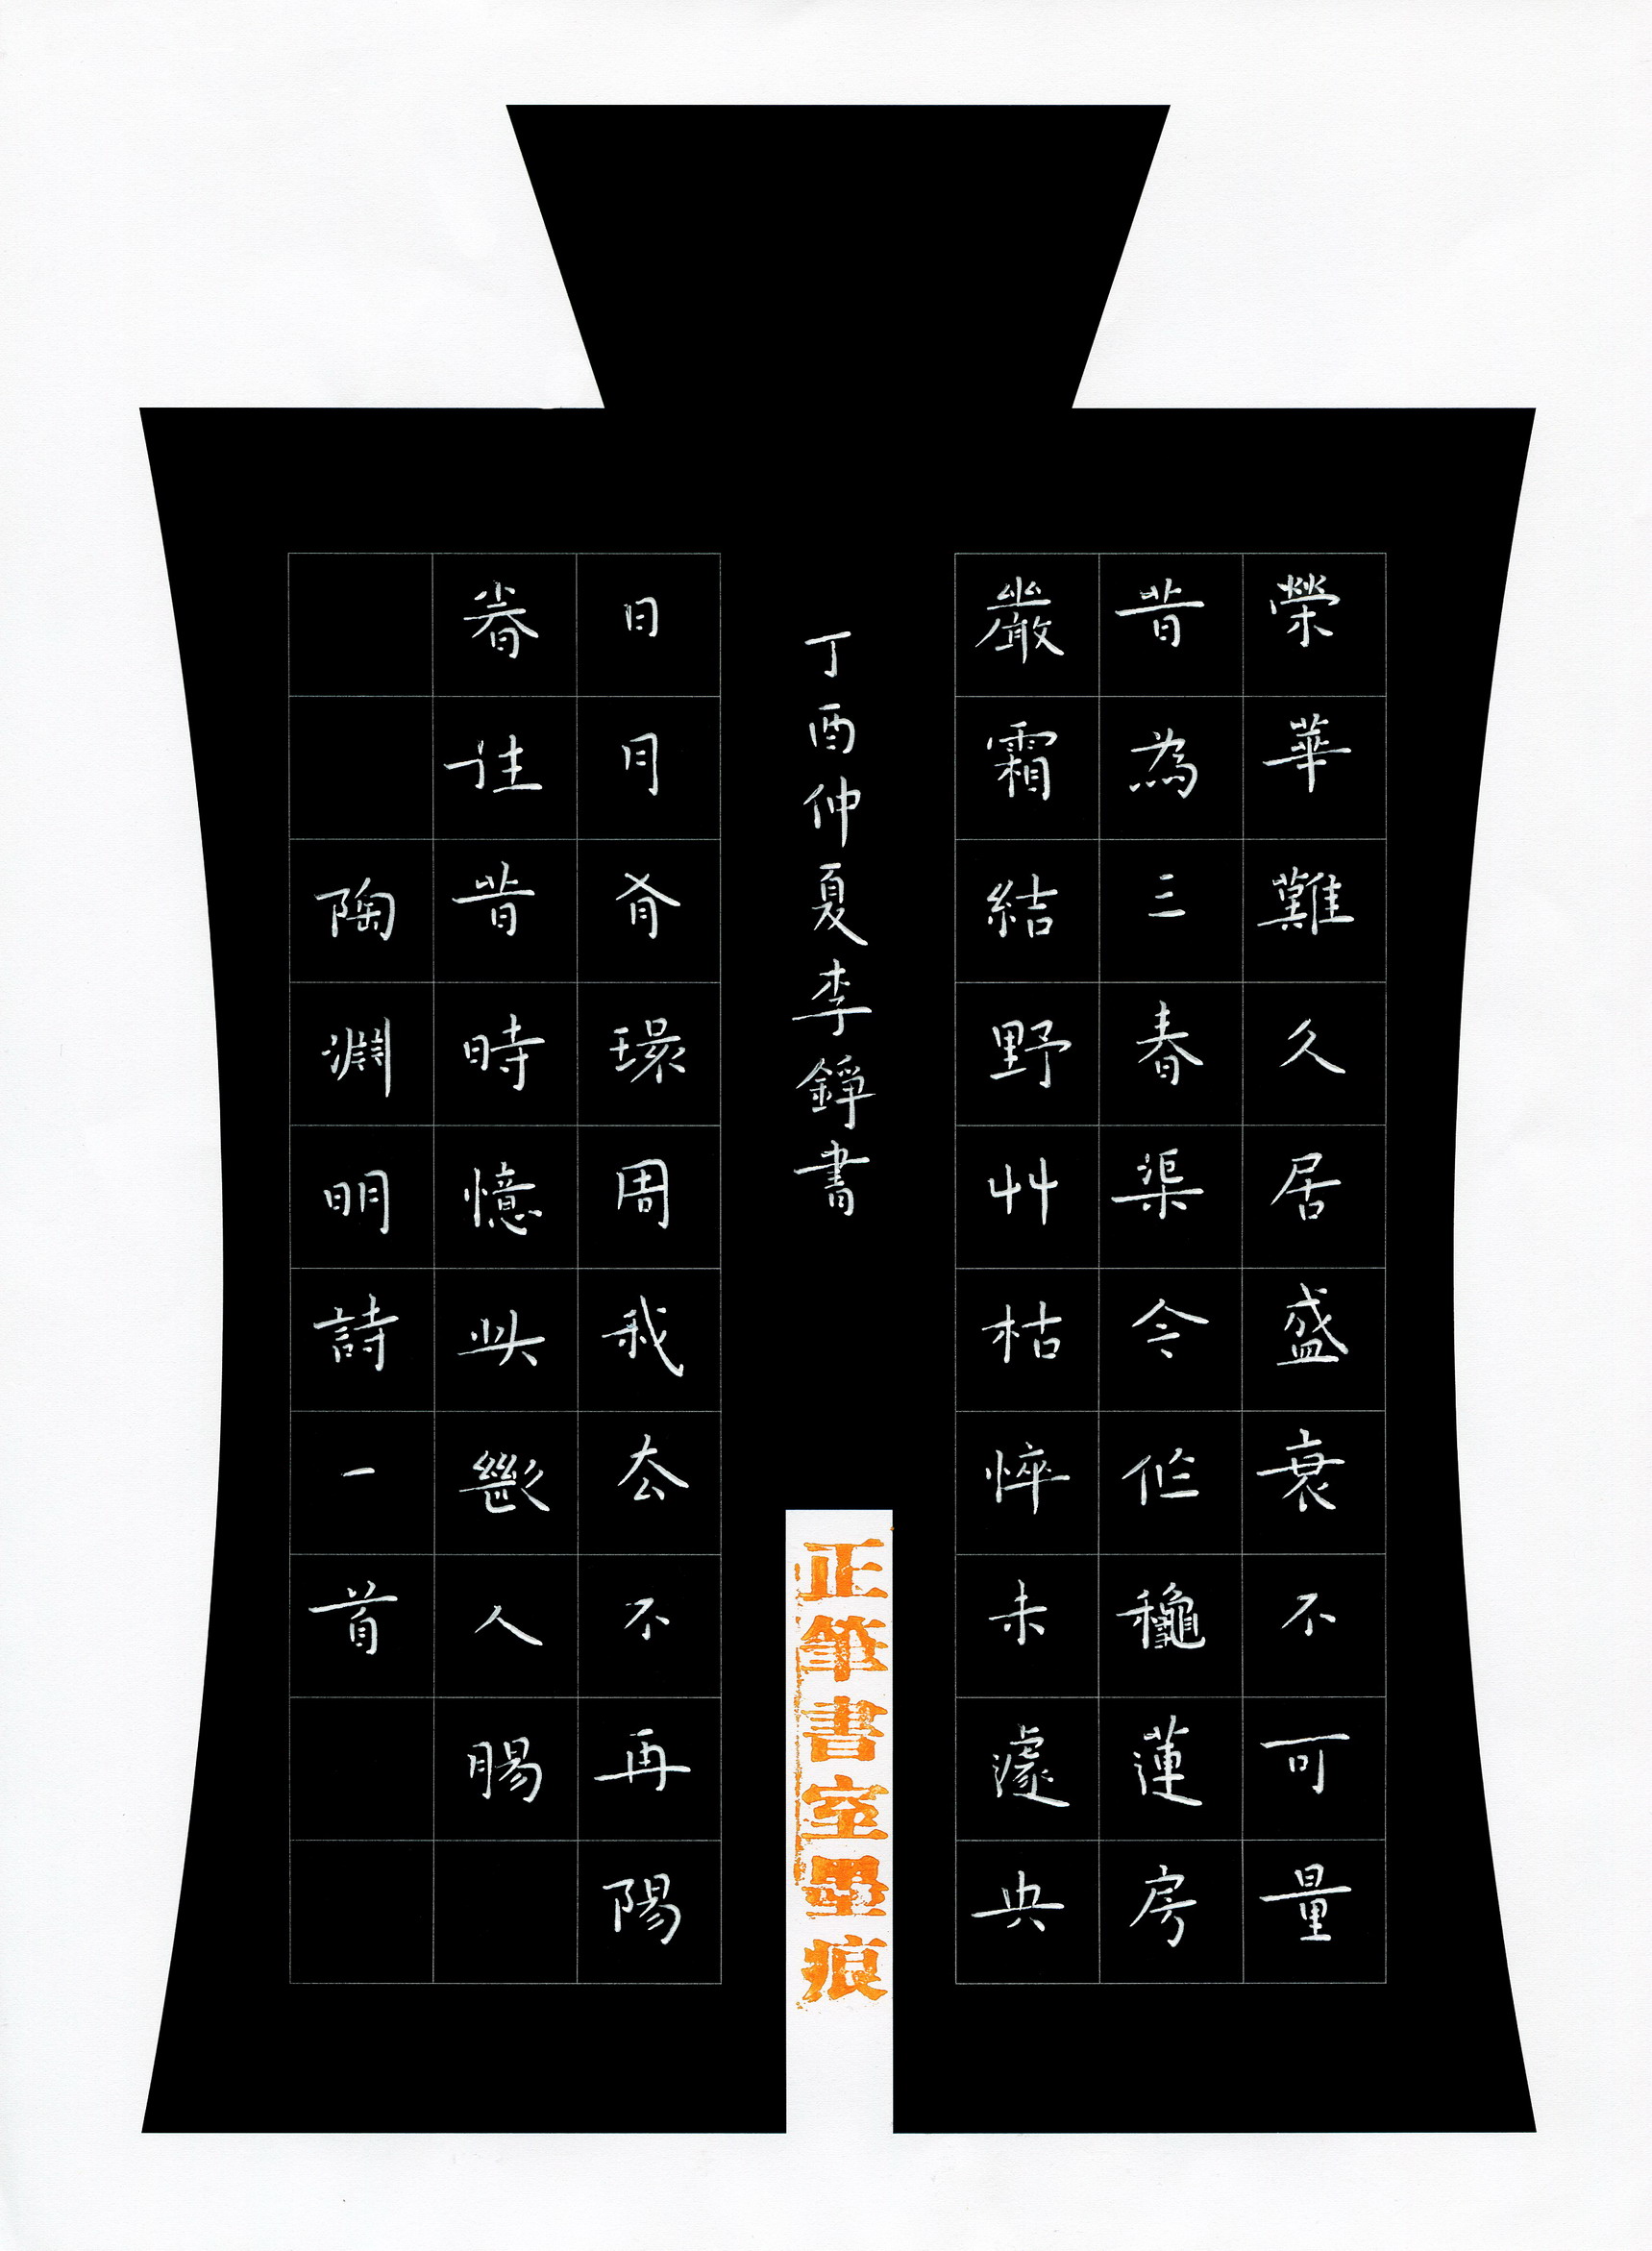 榮華難久居盛衰不可量
昔為三春渠今作龝蓮房
嚴霜結野艸枯悴未遽央
日月有環周我去不再陽
眷往昔時憶此斷人腸
陶淵明詩一首
丁酉仲夏李錚書
正筆書室墨痕